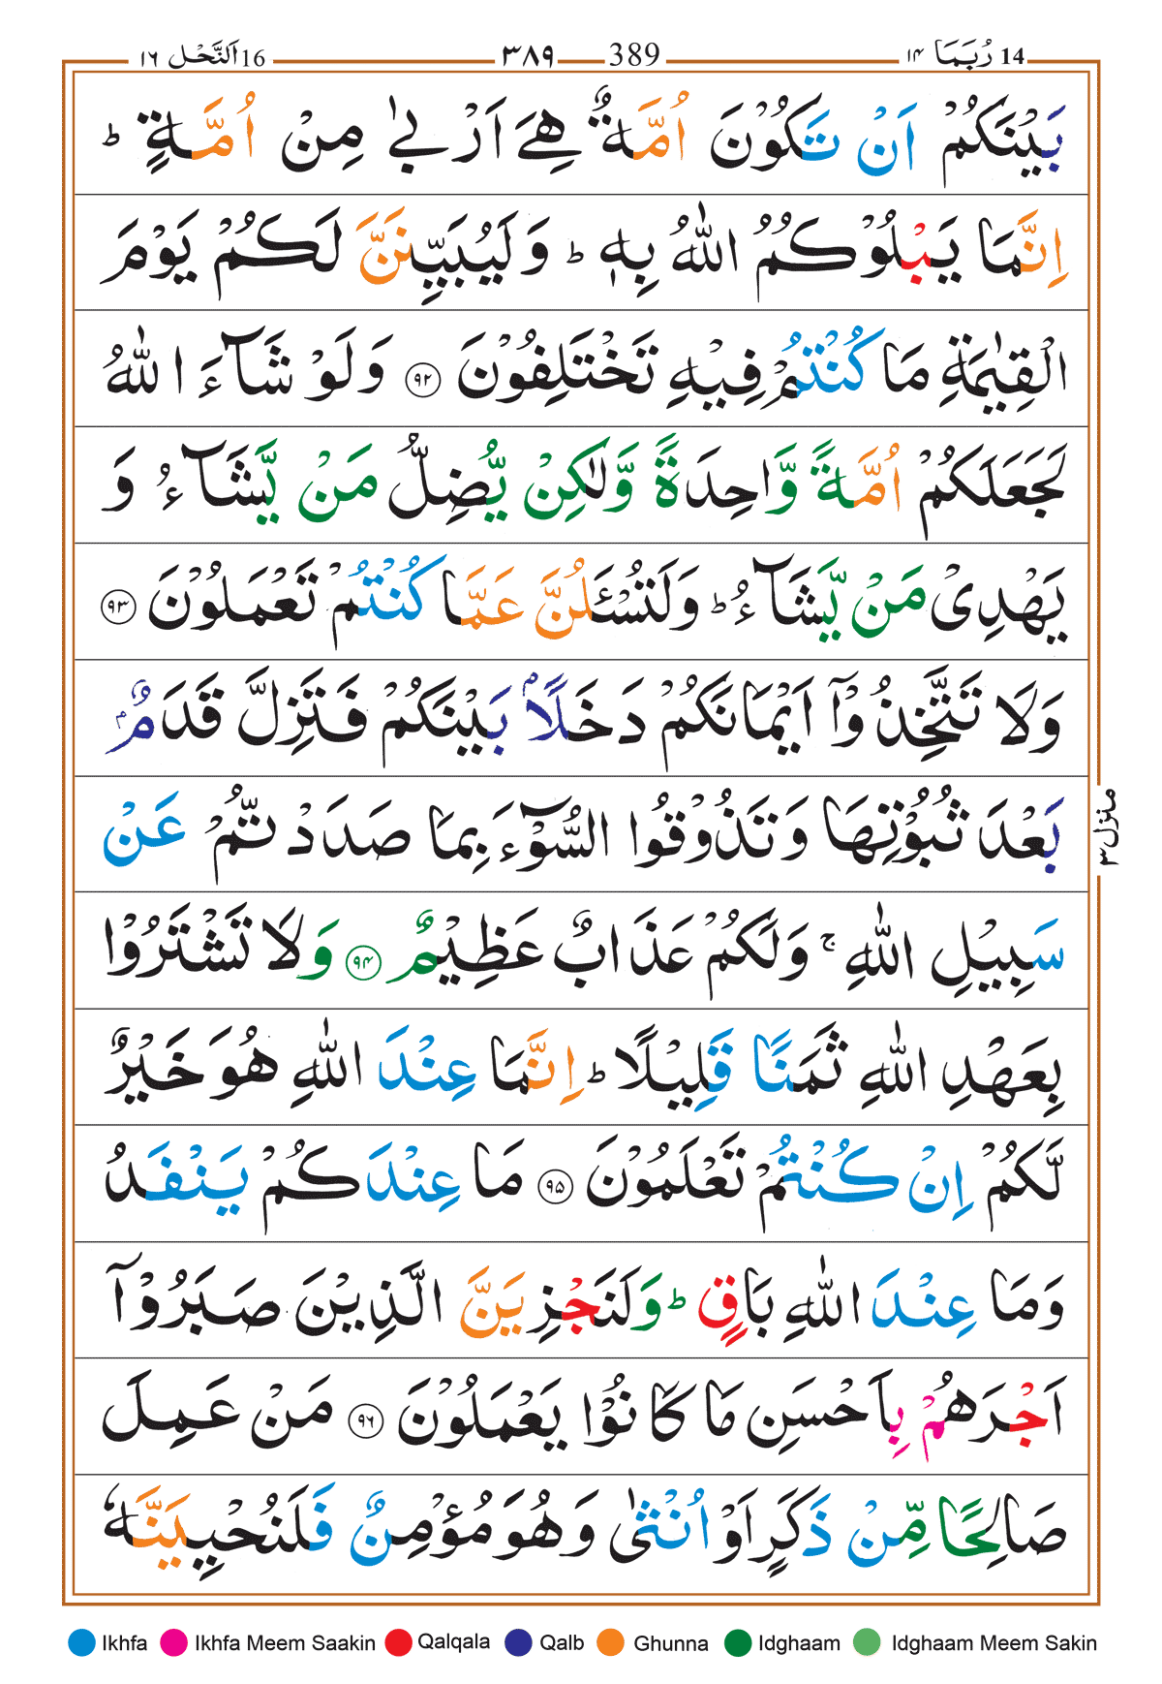 14 رُبَمَا ۱۴ 389 ۳۸۹ 16 اَلنَّحْل ۱۶
بَيْنَكُمْ اَنْ تَكُوْنَ اُمَّةٌ هِيَ اَرْبٰى مِنْ اُمَّةٍ ؕ
اِنَّمَا يَبْلُوْكُمُ اللّٰهُ بِهٖ ؕ وَلَيُبَيِّنَنَّ لَكُمْ يَوْمَ
الْقِيٰمَةِ مَا كُنْتُمْ فِيْهِ تَخْتَلِفُوْنَ ﴿۹۲﴾ وَلَوْ شَآءَ اللّٰهُ
لَجَعَلَكُمْ اُمَّةً وَّاحِدَةً وَّلٰكِنْ يُّضِلُّ مَنْ يَّشَآءُ وَ
يَهْدِىْ مَنْ يَّشَآءُ ؕ وَلَتُسْـَٔلُنَّ عَمَّا كُنْتُمْ تَعْمَلُوْنَ ﴿۹۳﴾
وَلَا تَتَّخِذُوْۤا اَيْمَانَكُمْ دَخَلًاۢ بَيْنَكُمْ فَتَزِلَّ قَدَمٌۢ
بَعْدَ ثُبُوْتِهَا وَتَذُوْقُوا السُّوْٓءَ بِمَا صَدَدْتُّمْ عَنْ
سَبِيْلِ اللّٰهِ ۚ وَلَكُمْ عَذَابٌ عَظِيْمٌ ﴿۹۴﴾ وَلَا تَشْتَرُوْا
بِعَهْدِ اللّٰهِ ثَمَنًا قَلِيْلًا ؕ اِنَّمَا عِنْدَ اللّٰهِ هُوَ خَيْرٌ
لَّكُمْ اِنْ كُنْتُمْ تَعْلَمُوْنَ ﴿۹۵﴾ مَا عِنْدَكُمْ يَنْفَدُ
وَمَا عِنْدَ اللّٰهِ بَاقٍ ؕ وَلَنَجْزِيَنَّ الَّذِيْنَ صَبَرُوْۤا
اَجْرَهُمْ بِاَحْسَنِ مَا كَانُوْا يَعْمَلُوْنَ ﴿۹۶﴾ مَنْ عَمِلَ
صَالِحًا مِّنْ ذَكَرٍ اَوْ اُنْثٰى وَهُوَ مُؤْمِنٌ فَلَنُحْيِيَنَّهٗ
منزل ۳
Ikhfa Ikhfa Meem Saakin Qalqala Qalb Ghunna Idghaam Idghaam Meem Sakin